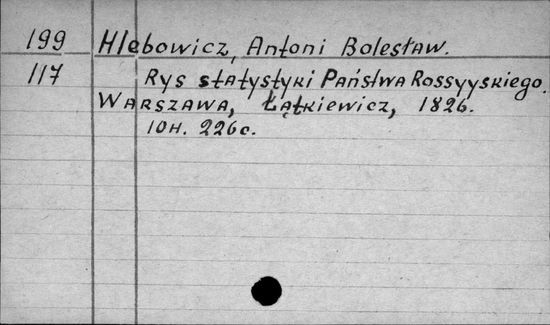 199 Hlebowicz, Antoni Bolesław.
117 Rys statystyki Państwa Rossyyskiego.
Warszawa, Łątkiewicz, 1826.
10н. 226с.